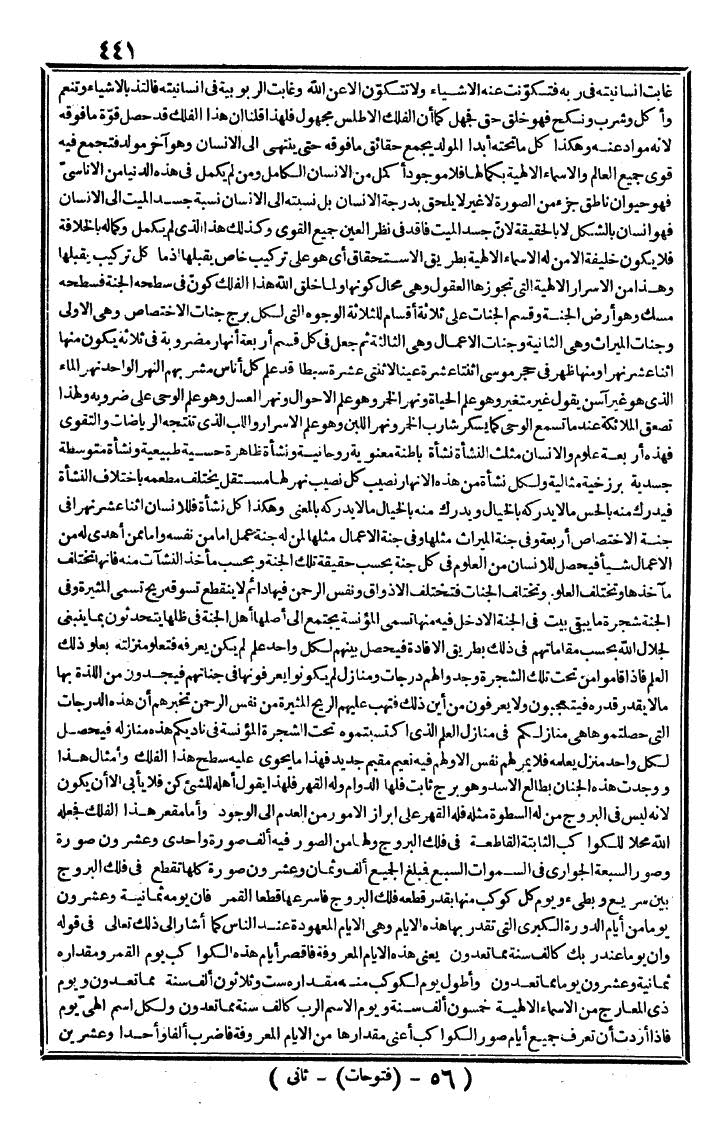 ٤٤١
غابت انسانيته فى ربه فتكوّنت عنه الاشياء ولا تتكوّن الاعن الله وغابت الربوبية فى انسانيته فالتذ بالاشياء وتنعم
وأكل وشرب ونكح فهو خلق حق فجهل كما أن الفلك الاطلس مجهول فلهذا قلنا ان هذا الفلك قد حصل قوّة ما فوقه
لانه مواد عنه وهكذا كل ما تحته أبدا المولد يجمع حقائق ما فوقه حتى ينتهى الى الانسان وهو آخر مولد فتجمع فيه
قوى جميع العالم والاسماء الالهية بكمالها فلا موجود أكمل من الانسان الكامل ومن لم يكمل فى هذه الدنيا من الاناسىّ
فهو حيوان ناطق جزء من الصورة لا غير لا يلحق بدرجة الانسان بل نسبته الى الانسان نسبة جسد الميت الى الانسان
فهو انسان بالشكل لا بالحقيقة لانّ جسد الميت فاقد فى نظر العين جميع القوى وكذلك هذا الذى لم يكمل وكماله بالخلافة
فلا يكون خليفة الا من له الاسماء الالهية بطريق الاستحقاق أى هو على تركيب خاص يقبلها اذ ما كل تركيب يقبلها
وهذا من الاسرار الالهية التى تجوزها العقول وهى محال كونها ولما خلق الله هذا الفلك كوّن فى سطحه الجنة فسطحه
مسك وهو أرض الجنة وقسم الجنات على ثلاثة أقسام للثلاثة الوجوه التى لكل برج جنات الاختصاص وهى الاولى
وجنات الميراث وهى الثانية وجنات الاعمال وهى الثالثة ثم جعل فى كل قسم أربعة أنهار مضروبة فى ثلاثة يكون منها
اثنا عشر نهرا ومنها ظهر فى حجر موسى اثنتا عشرة عينا لاثنتى عشرة سبطا قد علم كل أناس مشربهم النهر الواحد نهر الماء
الذى هو غير آسن يقول غير متغير وهو علم الحياة ونهر الخمر وهو علم الاحوال ونهر العسل وهو علم الوحى على ضروبه ولهذا
تصعق الملائكة عندما تسمع الوحى كما يسكر شارب الخمر ونهر اللبن وهو علم الاسرار واللب الذى تنتجه الرياضات والتقوى
فهذه أربعة علوم والانسان مثلث النشأة نشأة باطنة معنوية روحانية ونشأة ظاهرة حسية طبيعية ونشأة متوسطة
جسدية برزخية مثالية ولكل نشأة من هذه الانهار نصيب كل نصيب نهر لها مستقل يختلف مطعمه باختلاف النشأة
فيدرك منه بالحس ما لا يدركه بالخيال ويدرك منه بالخيال ما لا يدركه بالمعنى وهكذا كل نشأة فللانسان اثنا عشر نهرا فى
جنة الاختصاص أربعة وفى جنة الميراث مثلها وفى جنة الاعمال مثلها لمن له جنة عمل اما من نفسه واما من أهدى له من
الاعمال شيأ فيحصل للانسان من العلوم فى كل جنة بحسب حقيقة تلك الجنة وبحسب مأخذ النشآت منه فانها تختلف
مآخذها وتختلف العلوم وتختلف الجنات فتختلف الاذواق ونفس الرحمن فيها دائم لا ينقطع تسوقه ريح تسمى المثيرة وفى
الجنة شجرة ما يبقى بيت فى الجنة الا دخل فيه منها تسمى المؤنسة يجتمع الى أصلها أهل الجنة فى ظلها يتحدثون بما ينبغى
لجلال الله بحسب مقاماتهم فى ذلك بطريق الافادة فيحصل بينهم لكل واحد علم لم يكن يعرفه فتعلو منزلته بعلو ذلك
العلم فاذا قاموا من تحت تلك الشجرة وجدوا لهم درجات ومنازل لم يكونوا يعرفونها فى جناتهم فيجدون من اللذة بها
ما لا يقدر قدره فيتعجبون ولا يعرفون من أين ذلك فتهب عليهم الريح المثيرة من نفس الرحمن تخبرهم أن هذه الدرجات
التى حصلتموها هى منازلكم فى منازل العلم الذى اكتسبتموه تحت الشجرة المؤنسة فى ناديكم هذه منازله فيحصل
لكل واحد منزل يعلمه فلا يمر لهم نفس الا ولهم فيه نعيم مقيم جديد فهذا ما يحوى عليه سطح هذا الفلك وأمثال هذا
ووجدت هذه الجنان بطالع الاسد وهو برج ثابت فلها الدوام وله القهر فلهذا يقول أهله للشئ كن فلا يأبى الا أن يكون
لانه ليس فى البروج من له السطوة مثله فله القهر على ابراز الامور من العدم الى الوجود وأما مقعر هذا الفلك فجعله
الله محلا للكواكب الثابتة القاطعة فى فلك البروج ولها من الصور فيه ألف صورة واحدى وعشرون صورة
وصور السبعة الجوارى فى السموات السبع فبلغ الجميع ألف وثمان وعشرون صورة كلها تقطع فى فلك البروج
بين سريع وبطىء ويوم كل كوكب منها بقدر قطعه فلك البروج فاسرعها قطعا القمر فان يومه ثمانية وعشرون
يوما من أيام الدورة الكبرى التى تقدر بها هذه الايام وهى الايام المعهودة عند الناس كما أشار الى ذلك تعالى فى قوله
وان يوما عند ربك كالف سنة مما تعدون يعنى هذه الايام المعروفة فاقصر أيام هذه الكواكب يوم القمر ومقداره
ثمانية وعشرون يوما مما تعدون وأطول يوم لكوكب منه مقداره ست وثلاثون ألف سنة مما تعدون ويوم
ذى المعارج من الاسماء الالهية خمسون ألف سنة ويوم الاسم الرب كالف سنة مما تعدون ولكل اسم الهىّ يوم
فاذا أردت أن تعرف جميع أيام صور الكواكب أعنى مقدارها من الايام المعروفة فاضرب ألفا وأحدا وعشرين
( ٥٦ - (فتوحات) - ثانى )